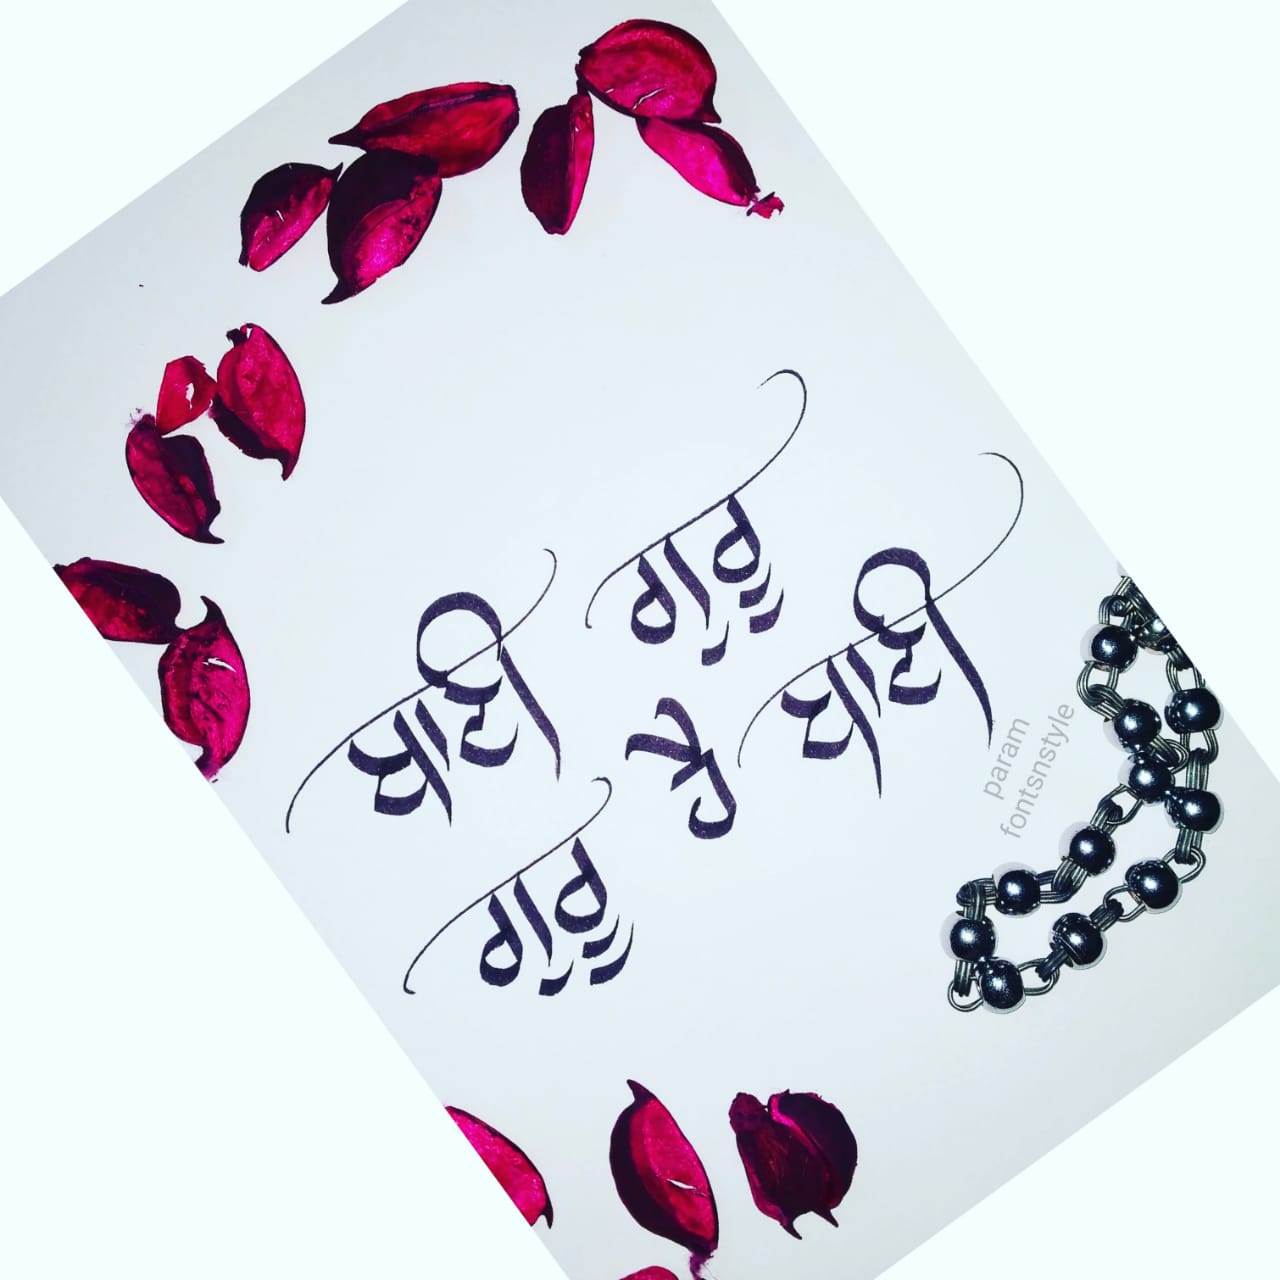 ਬਾਣੀ ਗੁਰੂ
ਗੁਰੂ ਹੈ ਬਾਣੀ
param
fontsnstyle